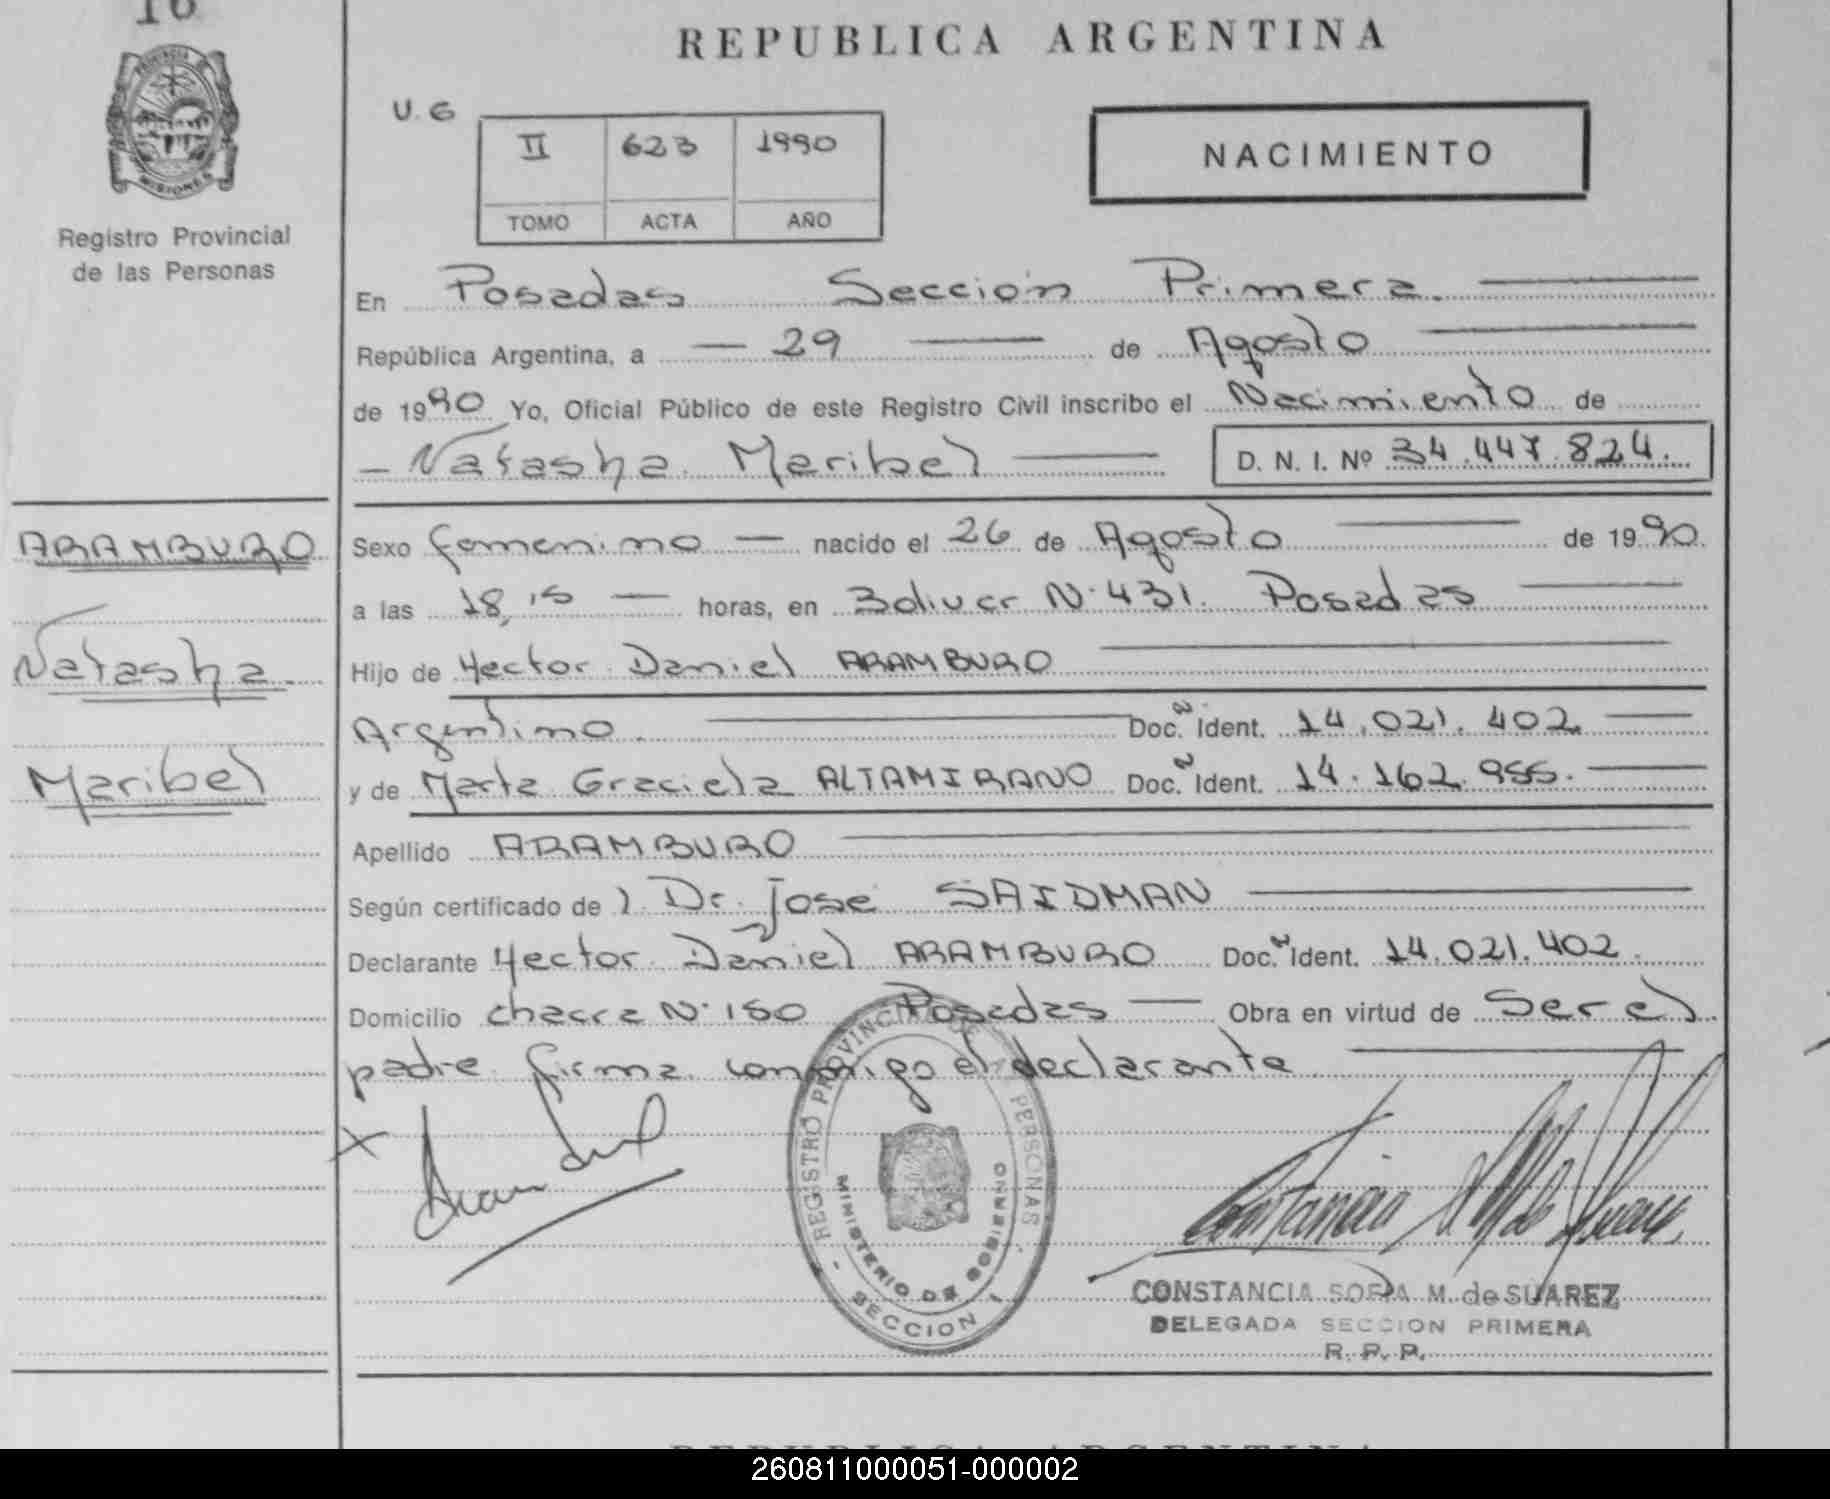 16
PROVINCIA DE
MISIONES
Registro Provincial
de las Personas
REPUBLICA ARGENTINA
U. G
II 623 1990
TOMO ACTA AÑO
NACIMIENTO
En Posadas Sección Primera.
República Argentina, a 29 de Agosto
de 1990 Yo, Oficial Público de este Registro Civil inscribo el Nacimiento de
Natasha Maribel D. N. I. Nº 34.447.824.
ARAMBURO
Natasha
Maribel
Sexo femenino nacido el 26 de Agosto de 1990.
a las 18,15 horas, en Bolivar N. 431. Posadas
Hijo de Hector Daniel ARAMBURO
Argentino. Doc. Ident. 14.021.402
y de Marta Graciela ALTAMIRANO Doc. Ident. 14.162.955.
Apellido ARAMBURO
Según certificado de l Dr. Jose SAIDMAN
Declarante Hector Daniel ARAMBURO Doc. Ident. 14.021.402.
Domicilio chacra N. 150 Posadas Obra en virtud de Ser el
padre firma conmigo el declarante
REGISTRO PROVINCIAL DE LAS PERSONAS
MINISTERIO DE GOBIERNO
SECCION I
CONSTANCIA SOFIA M. de SUAREZ
DELEGADA SECCION PRIMERA
R. P. P.
REPUBLICA ARGENTINA
260811000051-000002